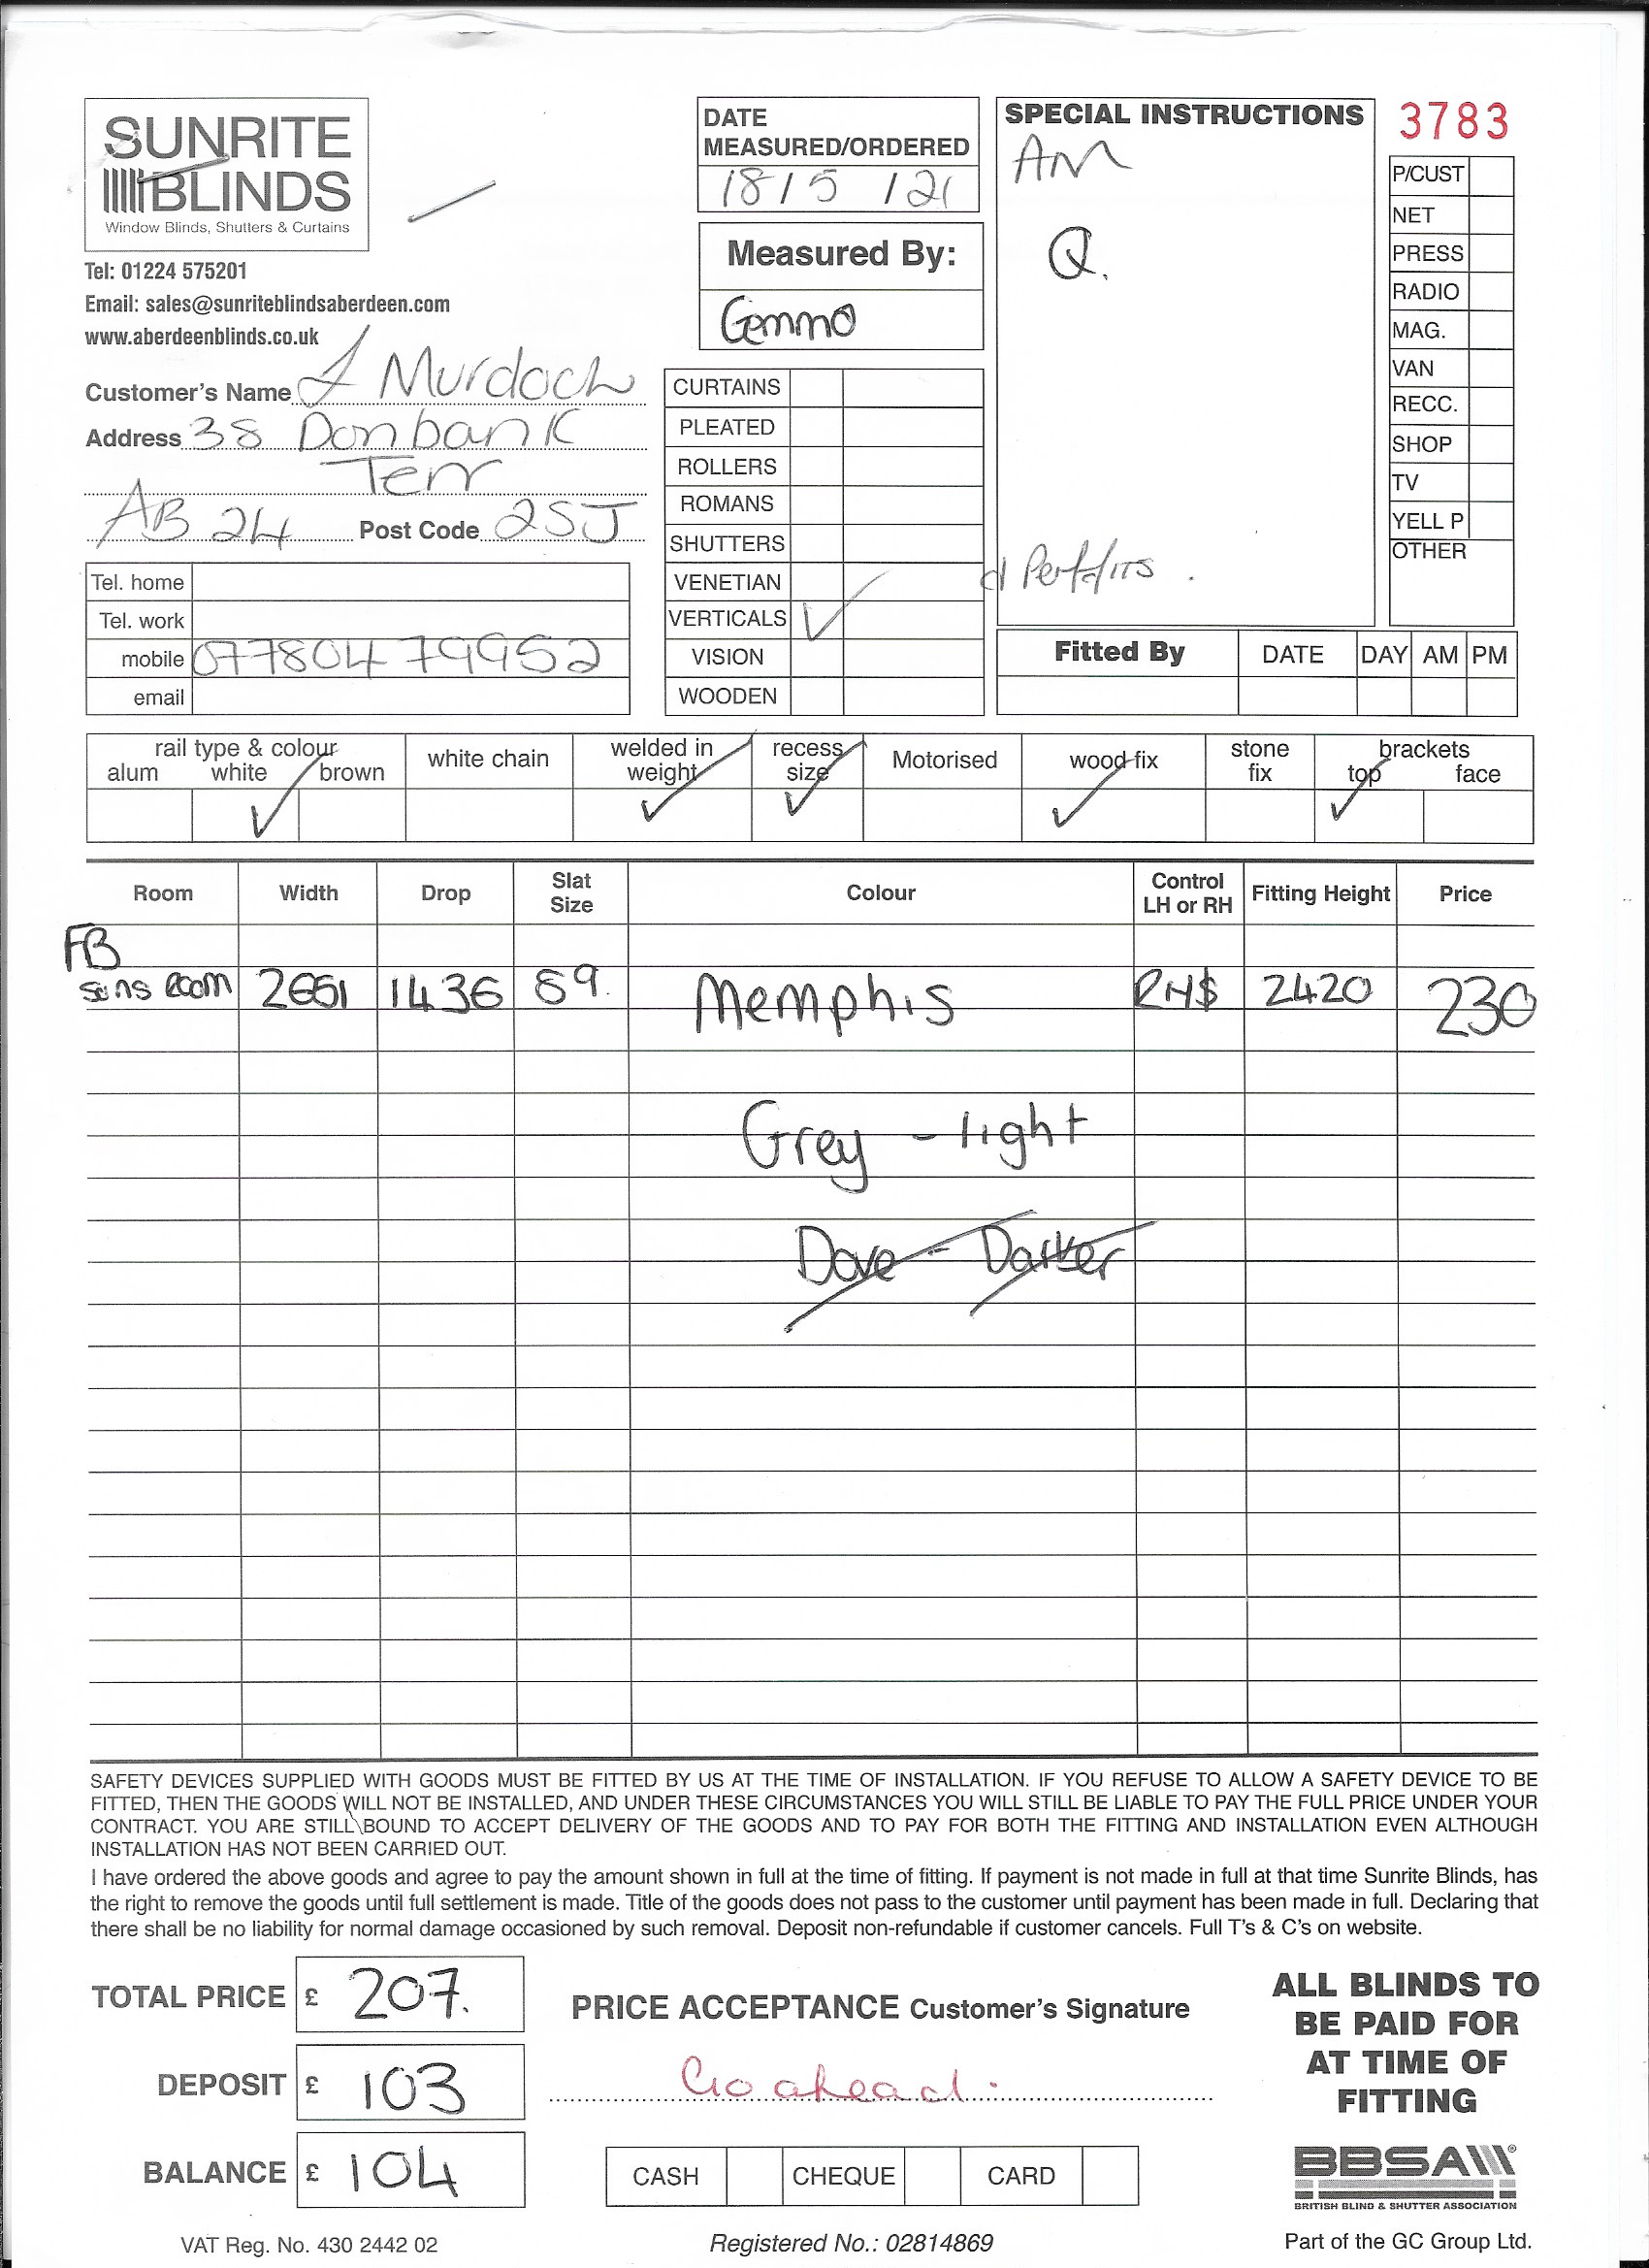 SUNRITE
BLINDS
Window Blinds, Shutters & Curtains
Tel: 01224 575201
Email: sales@sunriteblindsaberdeen.com
www.aberdeenblinds.co.uk
DATE
MEASURED/ORDERED
18/5/21
Measured By:
Gemma
SPECIAL INSTRUCTIONS
AM
Q.
3783
P/CUST
NET
PRESS
RADIO
MAG.
VAN
RECC.
SHOP
TV
YELL P
OTHER
Customer's Name J Murdoch
Address 38 Donbank
Terr
AB 24 Post Code 2SJ
Tel. home
Tel. work
mobile 07780479952
email
CURTAINS
PLEATED
ROLLERS
ROMANS
SHUTTERS
VENETIAN
VERTICALS ✓
VISION
WOODEN
Fitted By DATE DAY AM PM
rail type & colour white chain welded in recess Motorised wood fix stone brackets
alum white brown weight size fix top face
✓ ✓ ✓ ✓ ✓
Room Width Drop Slat Size Colour Control LH or RH Fitting Height Price
FB
1436 89. Memphis 2420 230
Grey - light
Dove - Darker
SAFETY DEVICES SUPPLIED WITH GOODS MUST BE FITTED BY US AT THE TIME OF INSTALLATION. IF YOU REFUSE TO ALLOW A SAFETY DEVICE TO BE
FITTED, THEN THE GOODS WILL NOT BE INSTALLED, AND UNDER THESE CIRCUMSTANCES YOU WILL STILL BE LIABLE TO PAY THE FULL PRICE UNDER YOUR
CONTRACT. YOU ARE STILL BOUND TO ACCEPT DELIVERY OF THE GOODS AND TO PAY FOR BOTH THE FITTING AND INSTALLATION EVEN ALTHOUGH
INSTALLATION HAS NOT BEEN CARRIED OUT.
I have ordered the above goods and agree to pay the amount shown in full at the time of fitting. If payment is not made in full at that time Sunrite Blinds, has
the right to remove the goods until full settlement is made. Title of the goods does not pass to the customer until payment has been made in full. Declaring that
there shall be no liability for normal damage occasioned by such removal. Deposit non-refundable if customer cancels. Full T's & C's on website.
TOTAL PRICE £ 207.
DEPOSIT £ 103
BALANCE £ 104
PRICE ACCEPTANCE Customer's Signature
Go ahead.
CASH CHEQUE CARD
ALL BLINDS TO
BE PAID FOR
AT TIME OF
FITTING
BBSA
BRITISH BLIND & SHUTTER ASSOCIATION
VAT Reg. No. 430 2442 02
Registered No.: 02814869
Part of the GC Group Ltd.